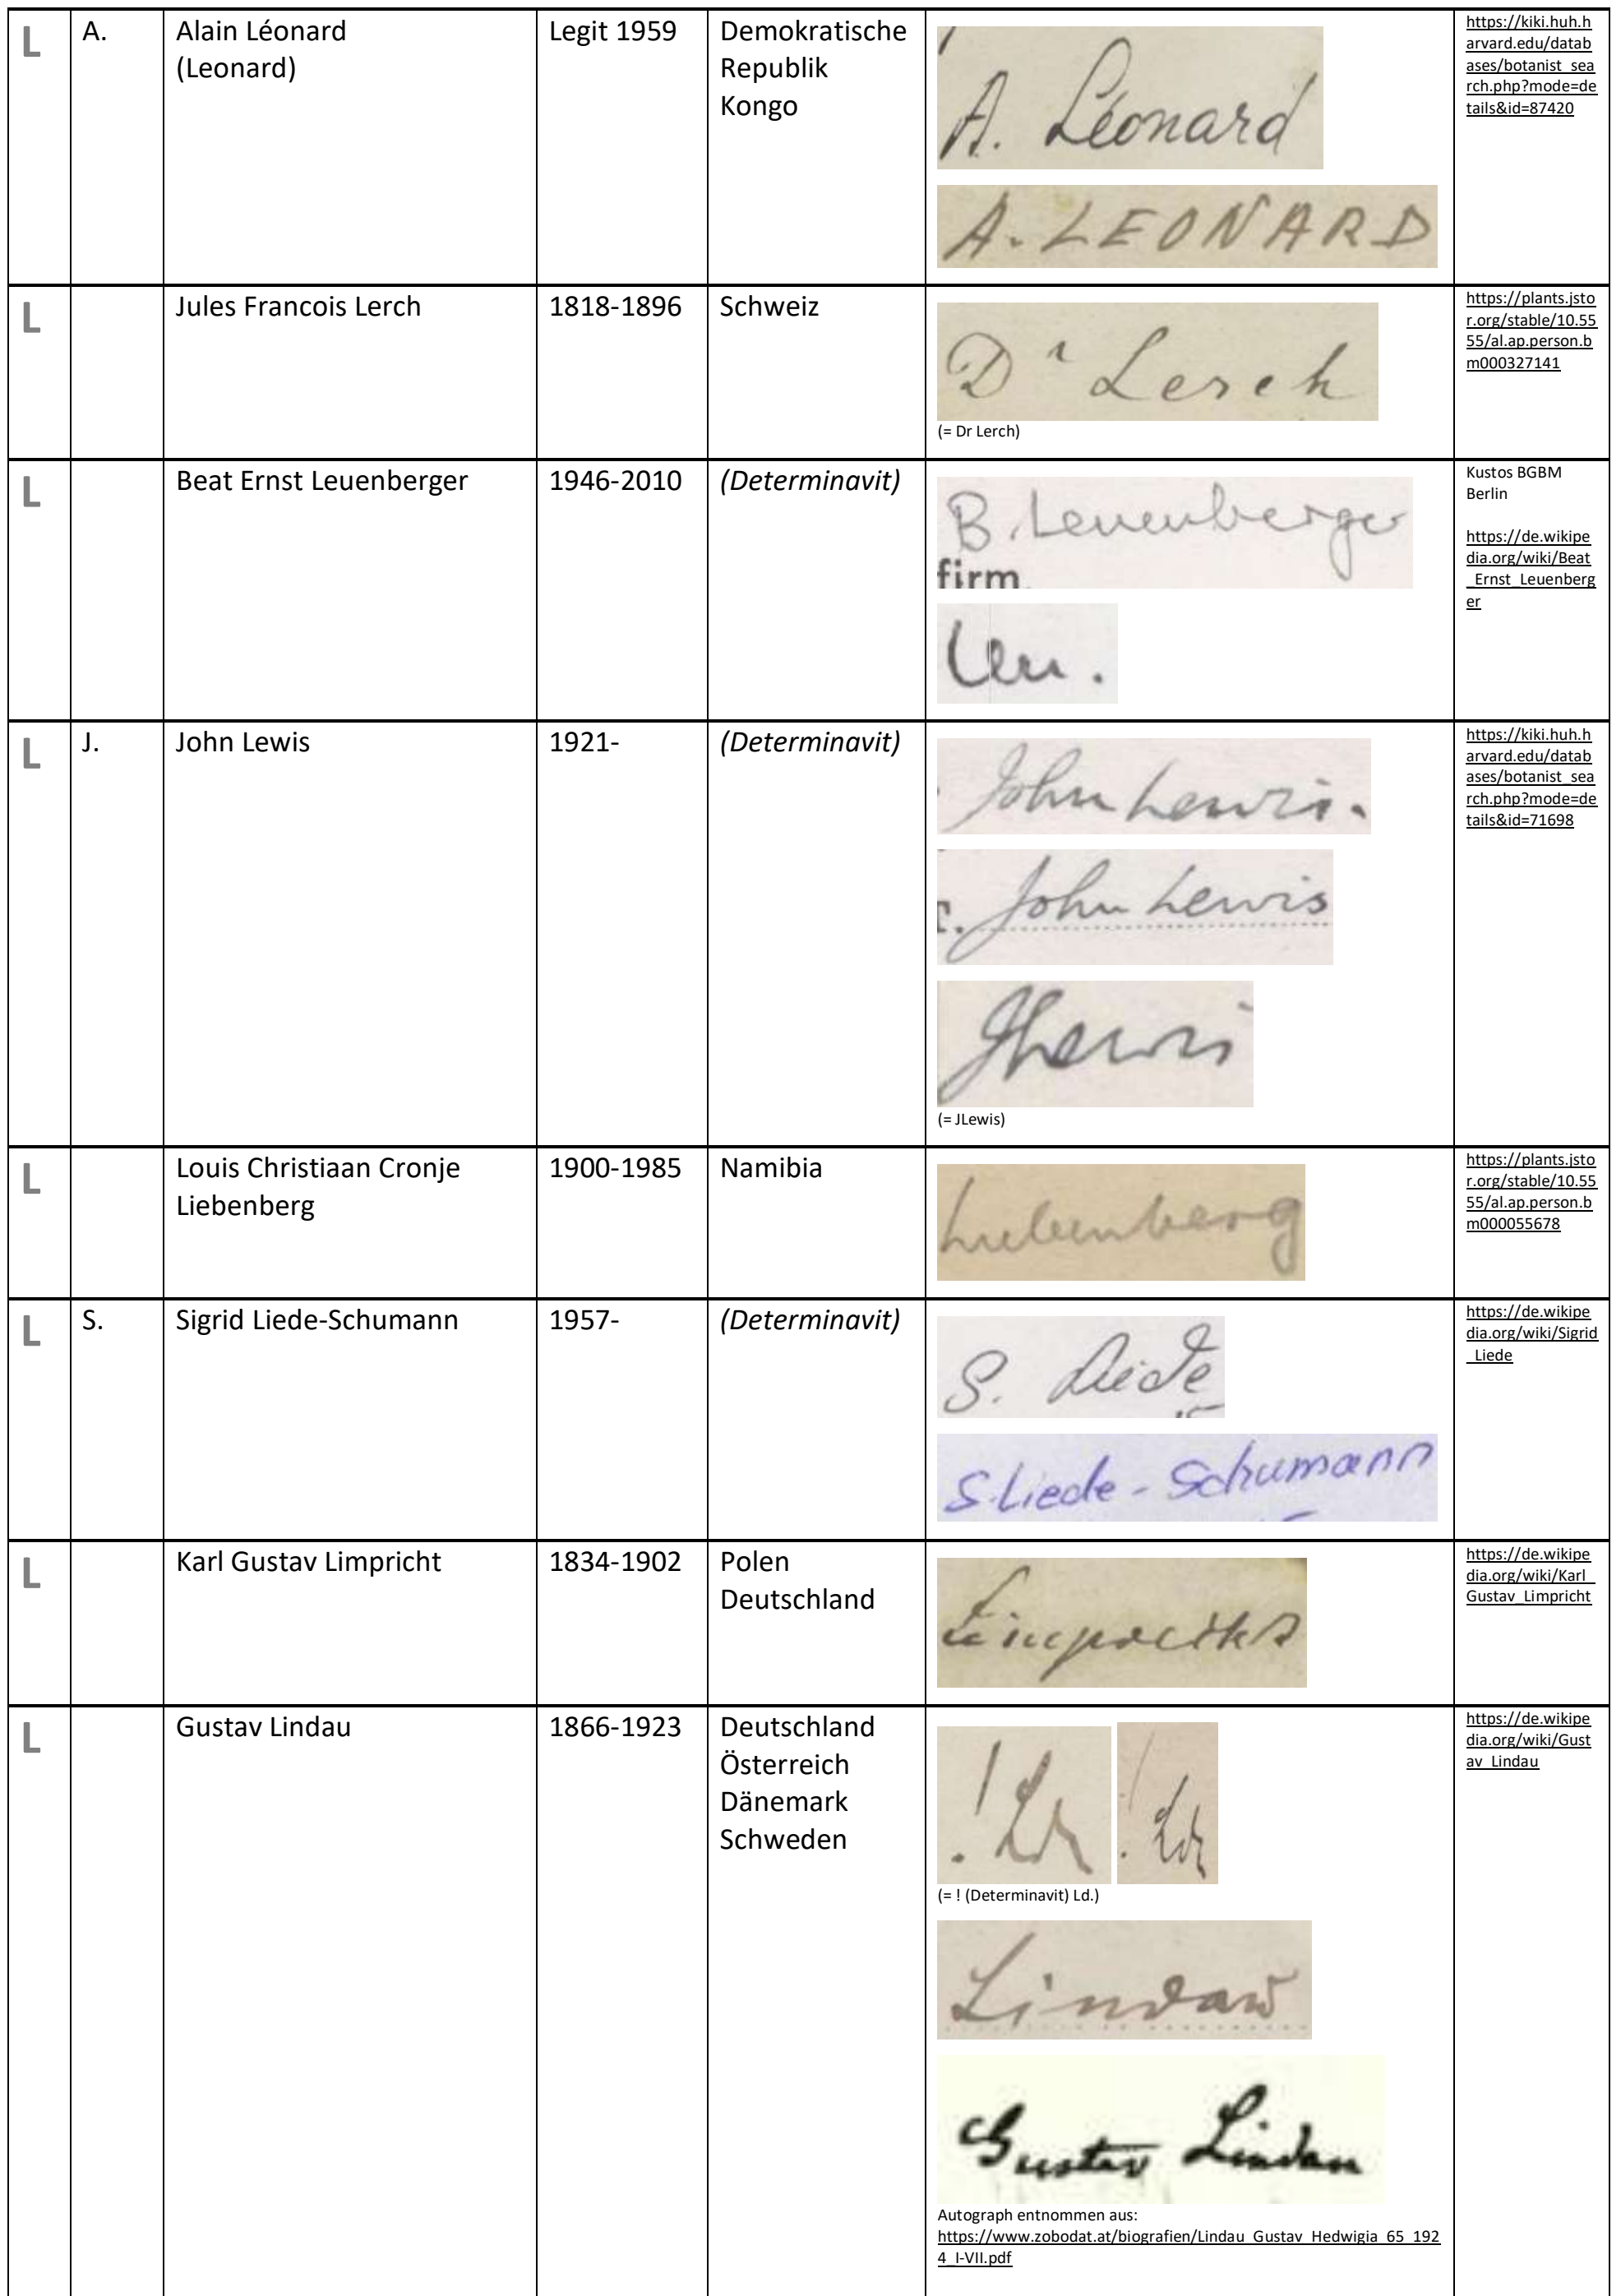 L
A.
Alain Léonard
(Leonard)
Legit 1959
Demokratische
Republik
Kongo
A. Léonard
A. LEONARD
https://kiki.huh.h
arvard.edu/datab
ases/botanist_sea
rch.php?mode=de
tails&id=87420
L
Jules Francois Lerch
1818-1896
Schweiz
Dr Lerch
(= Dr Lerch)
https://plants.jsto
r.org/stable/10.55
55/al.ap.person.b
m000327141
L
Beat Ernst Leuenberger
1946-2010
(Determinavit)
B. Leuenberger
firm.
Leu.
Kustos BGBM
Berlin
https://de.wikipe
dia.org/wiki/Beat
_Ernst_Leuenberg
er
L
J.
John Lewis
1921-
(Determinavit)
John Lewis.
John Lewis
JLewis
(= JLewis)
https://kiki.huh.h
arvard.edu/datab
ases/botanist_sea
rch.php?mode=de
tails&id=71698
L
Louis Christiaan Cronje
Liebenberg
1900-1985
Namibia
Liebenberg
https://plants.jsto
r.org/stable/10.55
55/al.ap.person.b
m000055678
L
S.
Sigrid Liede-Schumann
1957-
(Determinavit)
S. Liede
S. Liede - Schumann
https://de.wikipe
dia.org/wiki/Sigrid
_Liede
L
Karl Gustav Limpricht
1834-1902
Polen
Deutschland
Limpricht
https://de.wikipe
dia.org/wiki/Karl_
Gustav_Limpricht
L
Gustav Lindau
1866-1923
Deutschland
Österreich
Dänemark
Schweden
! Ld. ! Ld.
(= ! (Determinavit) Ld.)
Lindau
Gustav Lindau
Autograph entnommen aus:
https://www.zobodat.at/biografien/Lindau_Gustav_Hedwigia_65_192
4_I-VII.pdf
https://de.wikipe
dia.org/wiki/Gust
av_Lindau